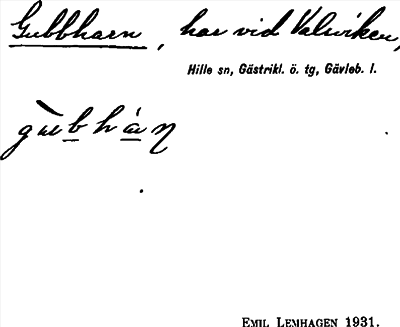 Gubbharn, har vid Valviken,
Hille sn, Gästrikl. ö. tg, Gävleb. l.
EMIL LEMHAGEN 1931.